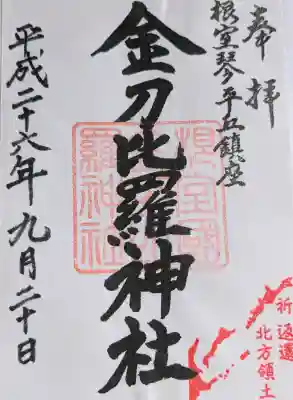 奉拝
根室琴平丘鎮座
金刀比羅神社
根室國
金刀比羅神社
平成二十六年九月二十日
祈返還
北方領土